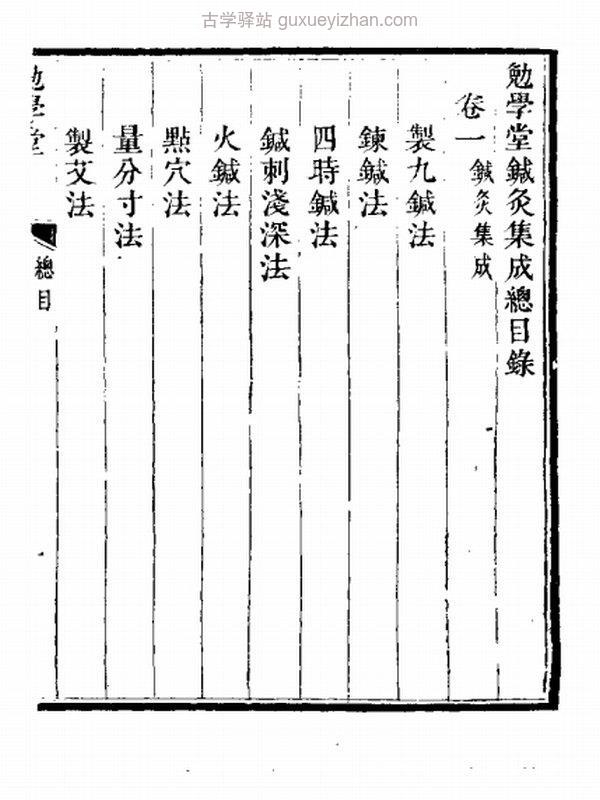 古学驿站 guxueyizhan.com
勉學堂鍼灸集成總目錄
卷一 鍼灸集成
製九鍼法
鍊鍼法
四時鍼法
鍼刺淺深法
火鍼法
點穴法
量分寸法
製艾法
勉學堂 總目